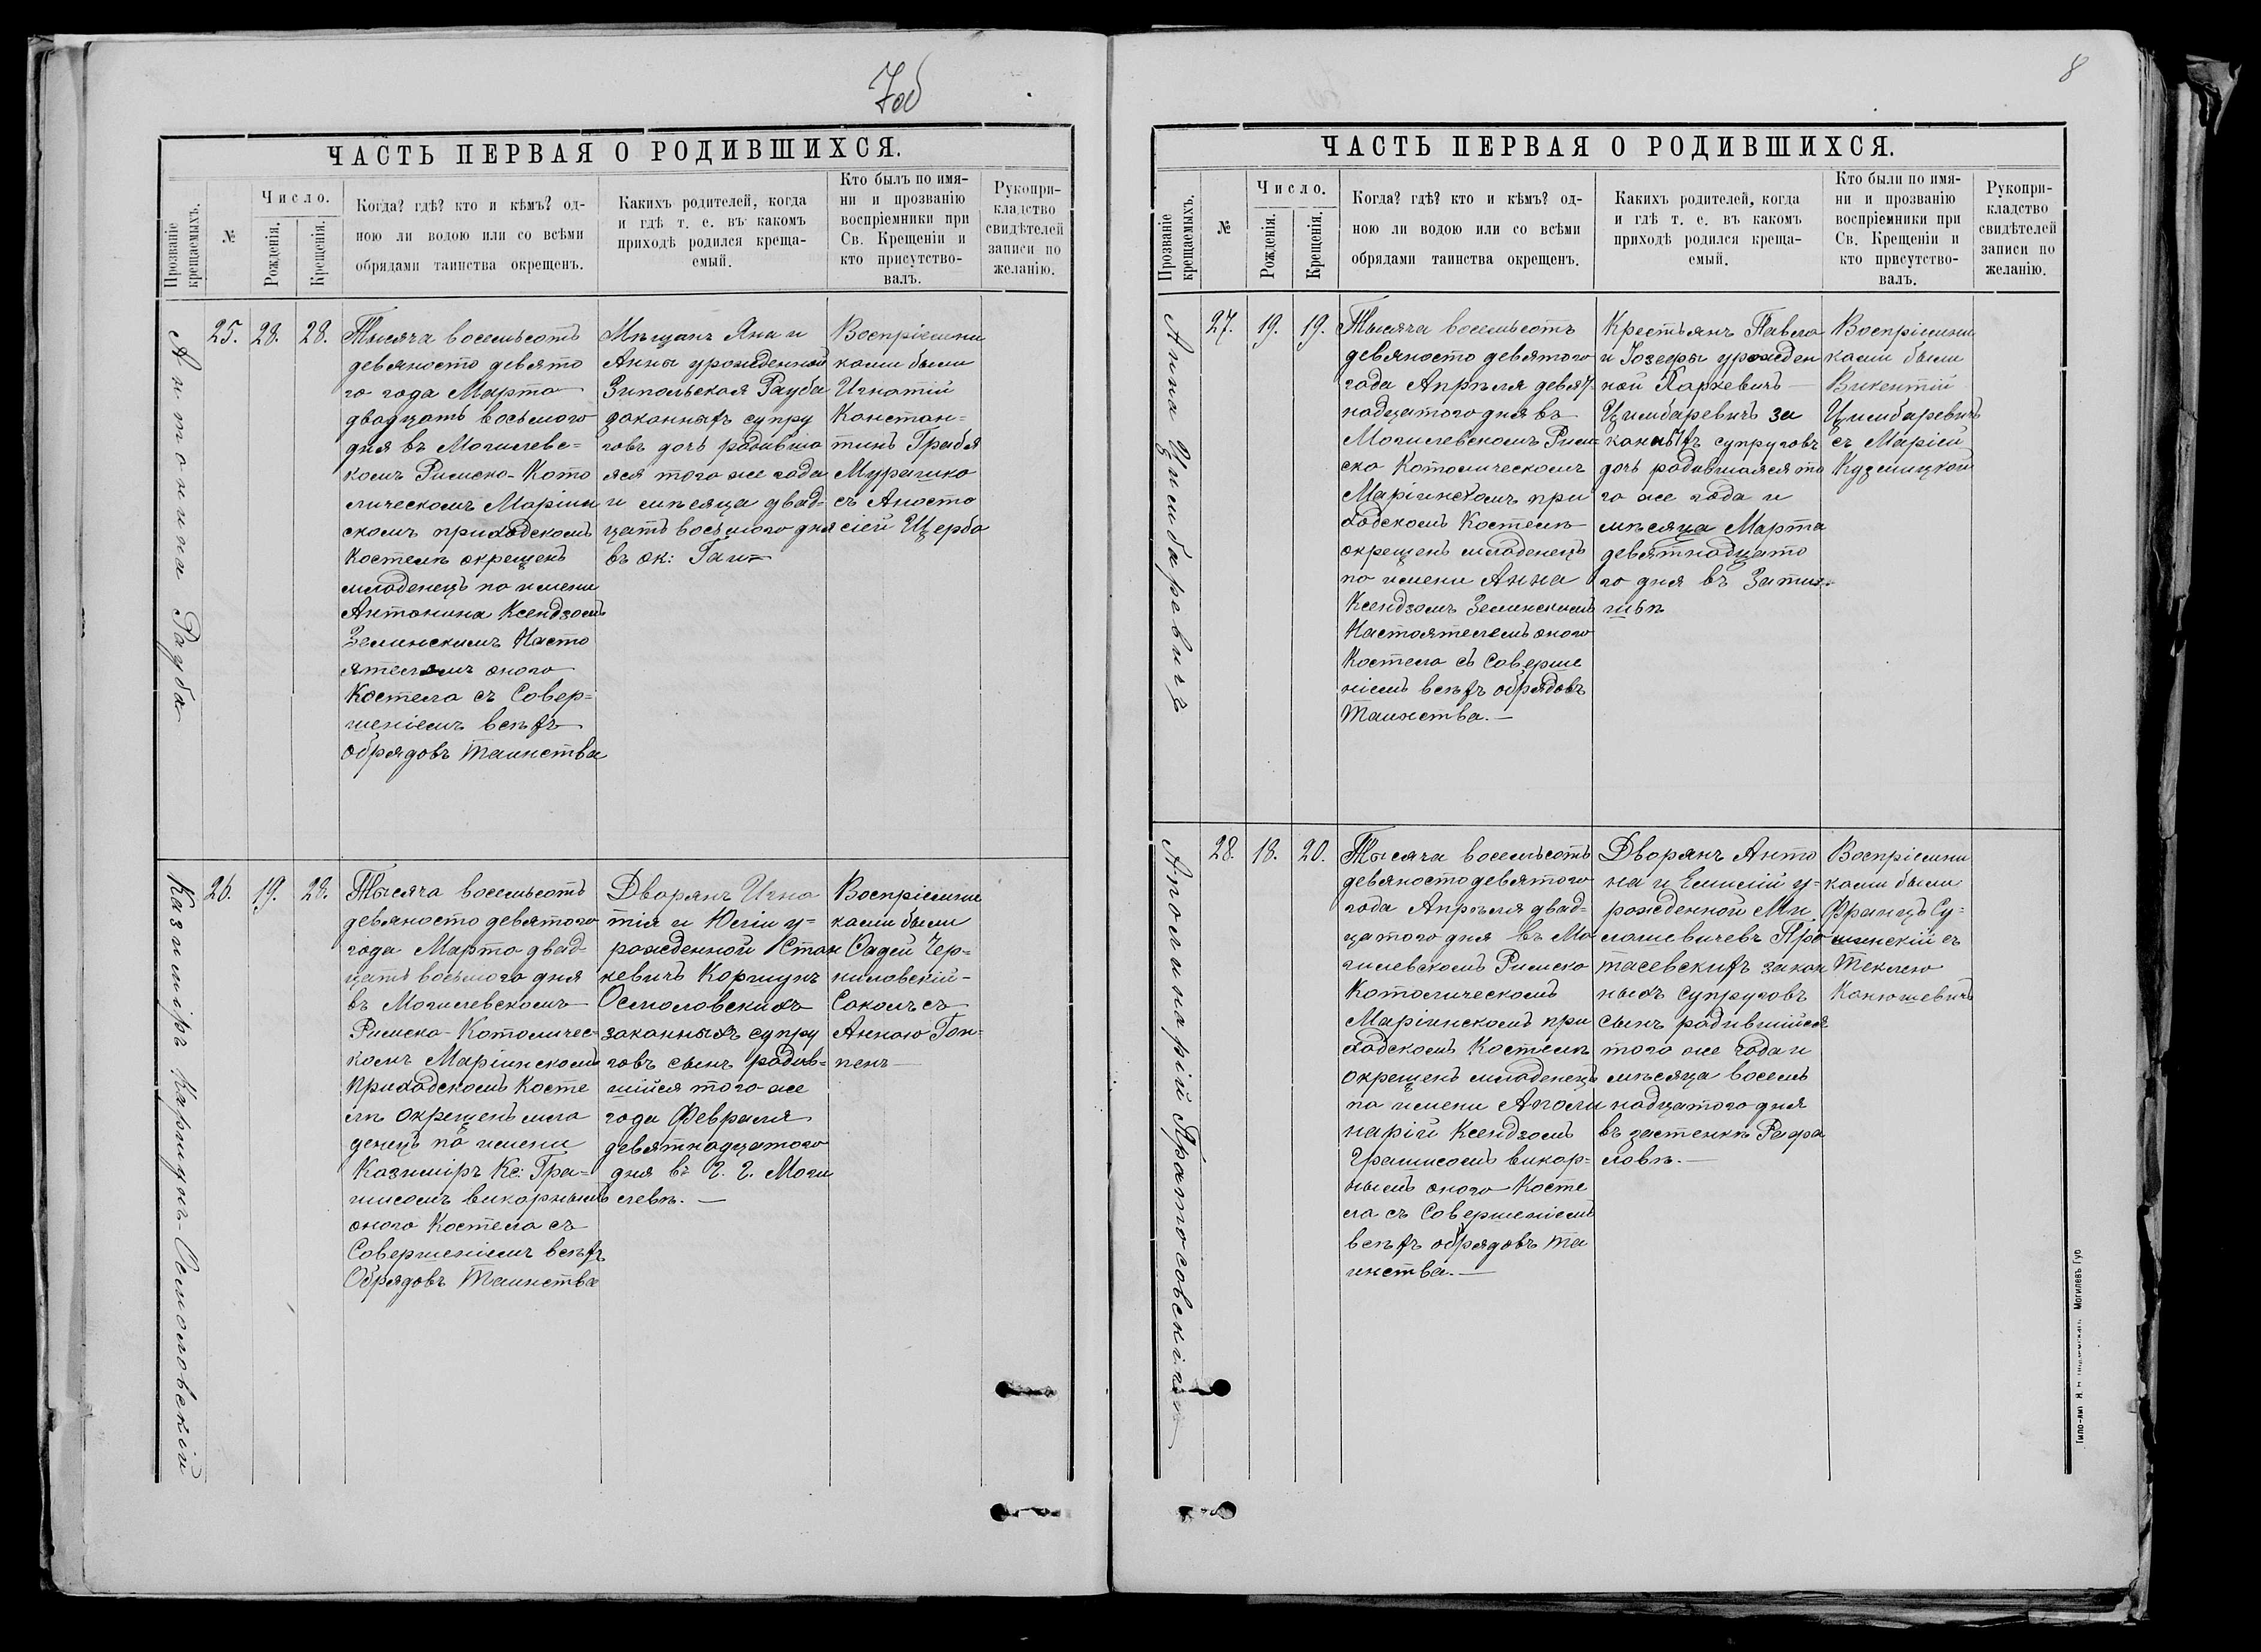 7об
ЧАСТЬ ПЕРВАЯ О РОДИВШИХСЯ.
Прозваніе крещаемыхъ.
№
Число.
Рожденія.
Крещенія.
Когда? гдѣ? кто и кѣмъ? од-
ною ли водою или со всѣми
обрядами таинства окрещенъ.
Какихъ родителей, когда
и гдѣ т. е. въ какомъ
приходѣ родился креща-
емый.
Кто былъ по имя-
ни и прозванію
воспріемники при
Св. Крещеніи и
кто присутство-
валъ.
Рукопри-
кладство
свидѣтелей
записи по
желанію.
Антонина Рауба
25.
28.
28.
Тысяча восемьсотъ
девяносто девято
го года Марта
двадцать восьмого
дня въ Могилевс-
комъ Римско-Като
лическомъ Маріин
скомъ приходскомъ
Костелѣ окрещенъ
младенецъ по имени
Антонина Ксендзомъ
Зелинскимъ Насто
ятелемъ оного
Костела съ Совер=
шеніемъ всѣхъ
обрядовъ таинства
Мѣщанъ Яна и
Анны урожденной
Зипольская Рауба
законныхъ супру
говъ дочь родивша
яся того же года
и мѣсяца двад=
цать восьмого дня
въ ок:
Воспріемни
ками были
Игнатій
Констан=
тинъ Грабля
Мурашко
съ Анаста
сіей Щерба
Казиміръ Коршунъ-Осмоловскій
26.
19.
28.
Тысяча восемьсотъ
девяносто девятого
года Марта двад=
цать восьмого дня
въ Могилевскомъ
Римско-Католичес=
комъ Маріинскомъ
приходскомъ Косте
лѣ окрещенъ мла
денецъ по имени
Казиміръ Кс: Гра=
лисомъ викарнымъ
оного Костела съ
Совершеніемъ всѣхъ
Обрядовъ Таинства
Дворянъ Игна
тія и Юліи у=
рожденной Стан
кевичъ Коршунъ
Осмоловскихъ
законныхъ супру
говъ сынъ родив=
шійся того-же
года Февраля
девятнадцатого
дня въ Г. Г. Моги
левѣ.
Воспріемни
ками были
Фадей Чер=
ниловскій-
Соколъ съ
Анною Гоп=
пенъ
8
ЧАСТЬ ПЕРВАЯ О РОДИВШИХСЯ.
Прозваніе крещаемыхъ.
№
Число.
Рожденія.
Крещенія.
Когда? гдѣ? кто и кѣмъ? од-
ною ли водою или со всѣми
обрядами таинства окрещенъ.
Какихъ родителей, когда
и гдѣ т. е. въ какомъ
приходѣ родился креща-
емый.
Кто были по имя-
ни и прозванію
воспріемники при
Св. Крещеніи и
кто присутство-
валъ.
Рукопри-
кладство
свидѣтелей
записи по
желанію.
Анна Цимбаревичъ
27.
19.
19.
Тысяча восемьсотъ
девяносто девятого
года Апрѣля девят-
надцатого дня въ
Могилевскомъ Рим=
ско Католическомъ
Маріинскомъ при
ходскомъ Костелѣ
окрещенъ младенецъ
по имени Анна
Ксендзомъ Зелинскимъ
Настоятелемъ оного
Костела съ Соверше
ніемъ всѣхъ обрядовъ
Таинства.
Крестьянъ Павла
и Іозефы урожден
ной Харкевичъ
Цимбаревичъ за
конныхъ супруговъ
дочь родившаяся то
го же года и
мѣсяца Марта
девятнадцато
го дня въ
Воспріемни
ками были
Викентій
Цимбаревичъ
съ Маріей
Кузмицкой
Аполинарій Протасовскій
28.
18.
20.
Тысяча восемьсотъ
девяносто девятого
года Апрѣля двад=
цатого дня въ Мо
гилевскомъ Римско
Католическомъ
Маріинскомъ при
ходскомъ Костелѣ
окрещенъ младенецъ
по имени Аполи
нарій Ксендзомъ
Гралисомъ викар=
нымъ оного Косте
ла съ Совершеніемъ
всѣхъ обрядовъ та
инства.
Дворянъ Анто
на и Емиліи у=
рожденной Ми
лошевичевъ Про
тасевскихъ закон
ныхъ супруговъ
сынъ родившійся
того же года и
мѣсяца восемь
надцатого дня
въ застенкѣ Рафа
ловѣ.
Воспріемни
ками были
Францъ Су=
шинскій съ
Теклею
Конюшевичъ
Могилевъ Губ